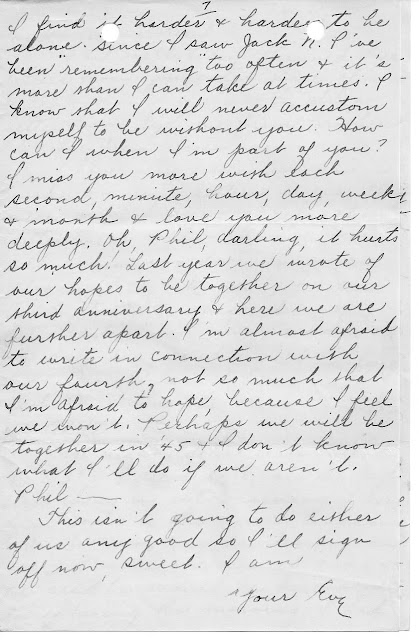 7
I find it harder & harder to be
alone. Since I saw Jack W. I've
been "remembering" too often & it's
more than I can take at times. I
know that I will never accustom
myself to be without you. How
can I when I'm part of you?
I miss you more with each
second, minute, hour, day, week
& month & love you more
deeply. Oh, Phil, darling, it hurts
so much! Last year we wrote of
our hopes to be together on our
third anniversary & here we are
further apart. I'm almost afraid
to write in connection with
our fourth, not so much that
I'm afraid to hope because I feel
we won't. Perhaps we will be
together in '45 & I don't know
what I'll do if we aren't.
Phil —
This isn't going to do either
of us any good so I'll sign
off now, sweet. I am
Your Eve